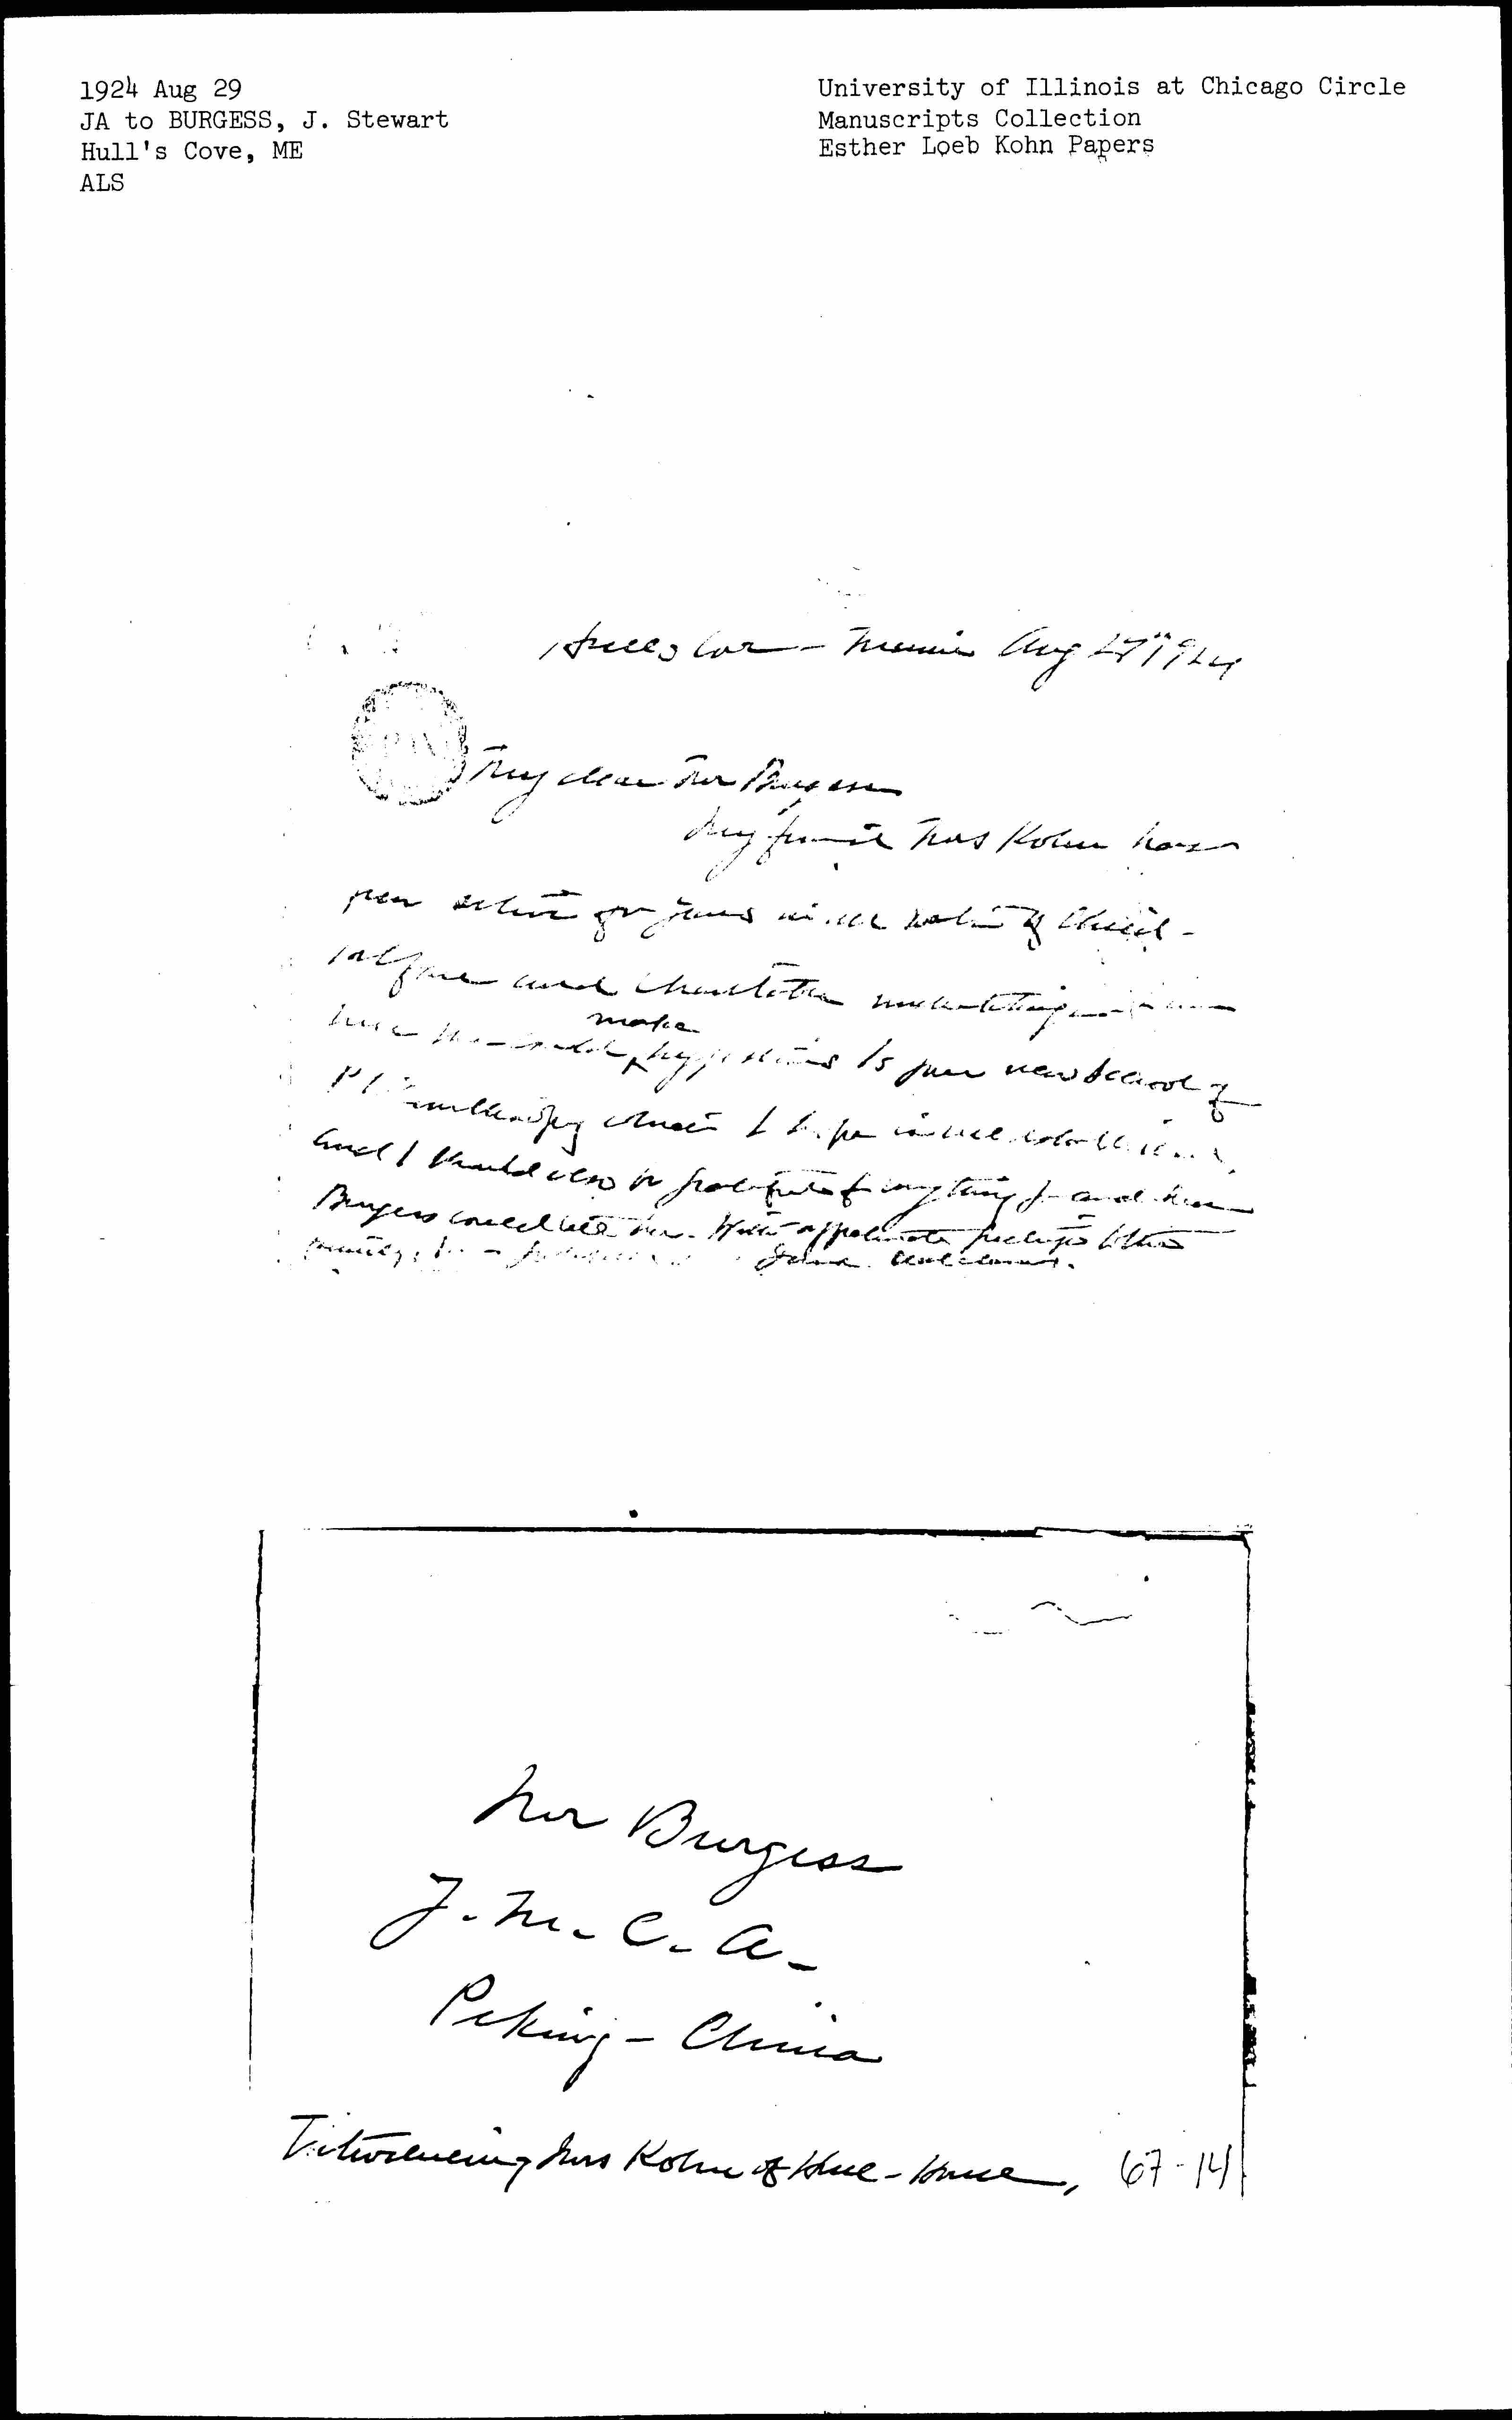 1924 Aug 29
JA to BURGESS, J. Stewart
Hull's Cove, ME
ALS
University of Illinois at Chicago Circle
Manuscripts Collection
Esther Loeb Kohn Papers
Hulls Cove - Maine Aug 1924
My dear Mr Burgess
My friend Mrs Kohn has
been active for years in the of Child-
welfare and Charitable
make to your new School of
Philanthropy which I hope is well
and I should also be grateful for anything you and Mrs
Burgess could tell her. With affectionate feelings to the
family, Jane Addams.
Mr Burgess
Y. M. C. A.
Peking - China
Introducing Mrs Kohn of Hull-House, 67-14